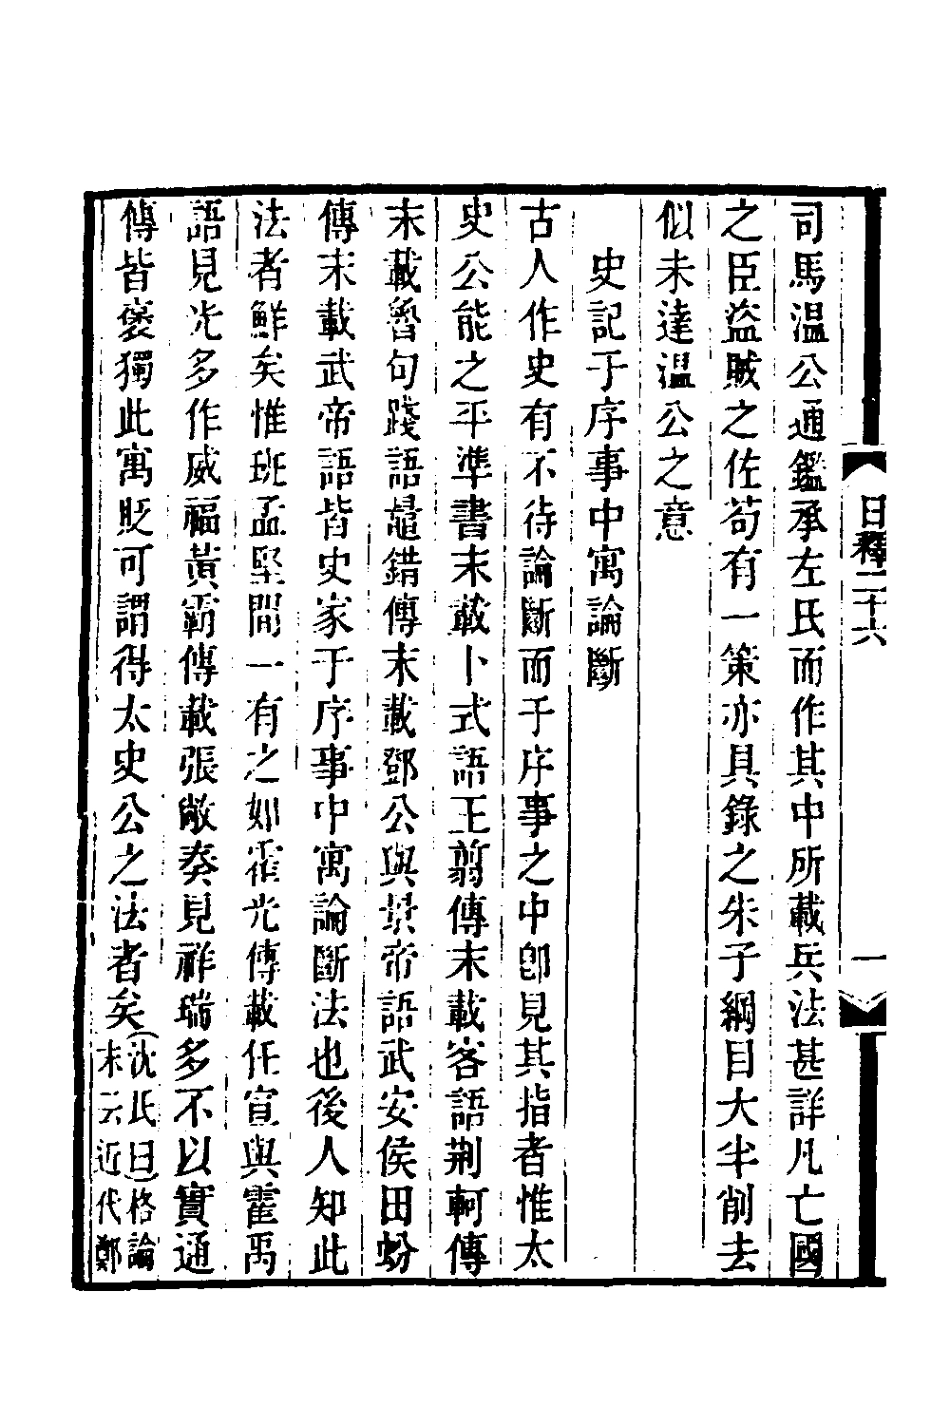 日釋二十六
一
司馬温公通鑑承左氏而作其中所載兵法甚詳凡亡國
之臣盜賊之佐茍有一策亦具錄之朱子綱目大半削去
似未達温公之意
史記于序事中寓論斷
古人作史有不待論斷而于序事之中卽見其指者惟太
史公能之平準書末載卜式語王翦傳末載客語荆軻傳
末載魯句踐語鼂錯傳末載鄧公與景帝語武安侯田蚡
傳末載武帝語皆史家于序事中寓論斷法也後人知此
法者鮮矣惟班孟堅間一有之如霍光傳載任宣與霍禹
語見光多作威福黃霸傳載張敞奏見祥瑞多不以實通
傳皆褒獨此寓貶可謂得太史公之法者矣
(沈氏曰)格論
末云近代鄭